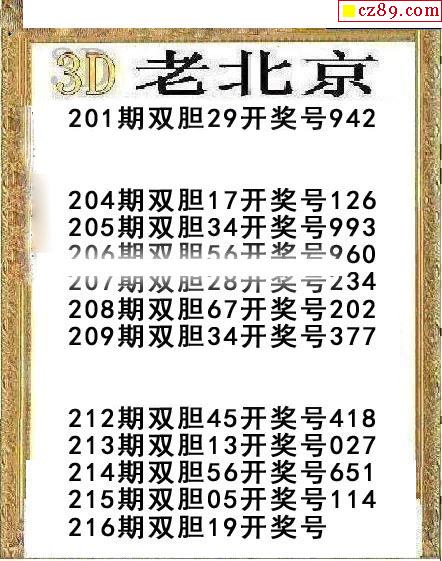 cz89.com
3D 老北京
201期双胆29开奖号942
204期双胆17开奖号126
205期双胆34开奖号993
206期双胆56开奖号960
207期双胆28开奖号234
208期双胆67开奖号202
209期双胆34开奖号377
212期双胆45开奖号418
213期双胆13开奖号027
214期双胆56开奖号651
215期双胆05开奖号114
216期双胆19开奖号